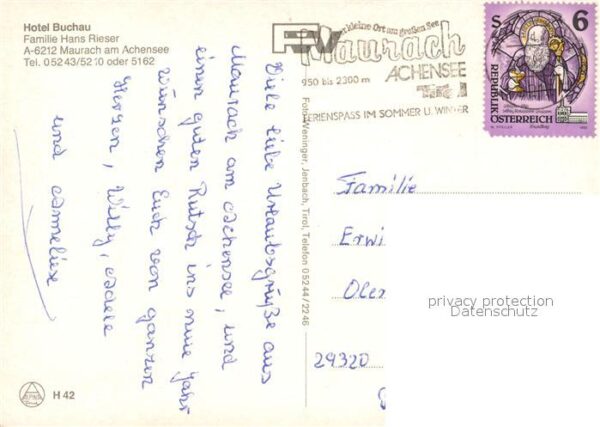 Hotel Buchau
Familie Hans Rieser
A-6212 Maurach am Achensee
Tel. 05243/5210 oder 5162
Viele liebe Urlaubsgrüße aus
Maurach am Achensee, und
einen guten Rutsch ins neue Jahr
wünschen Euch von ganzen
Herzen, Willy, Adele
und Anneliese
H 42
Foto Weninger, Jenbach, Tirol, Telefon 05244/2246
kleine Ort am großen See
Maurach
ACHENSEE
950 bis 2300 m
Tirol
FERIENSPASS IM SOMMER U. WINTER
S 6
REPUBLIK
ÖSTERREICH
Familie
Erwi
29320
privacy protection
Datenschutz